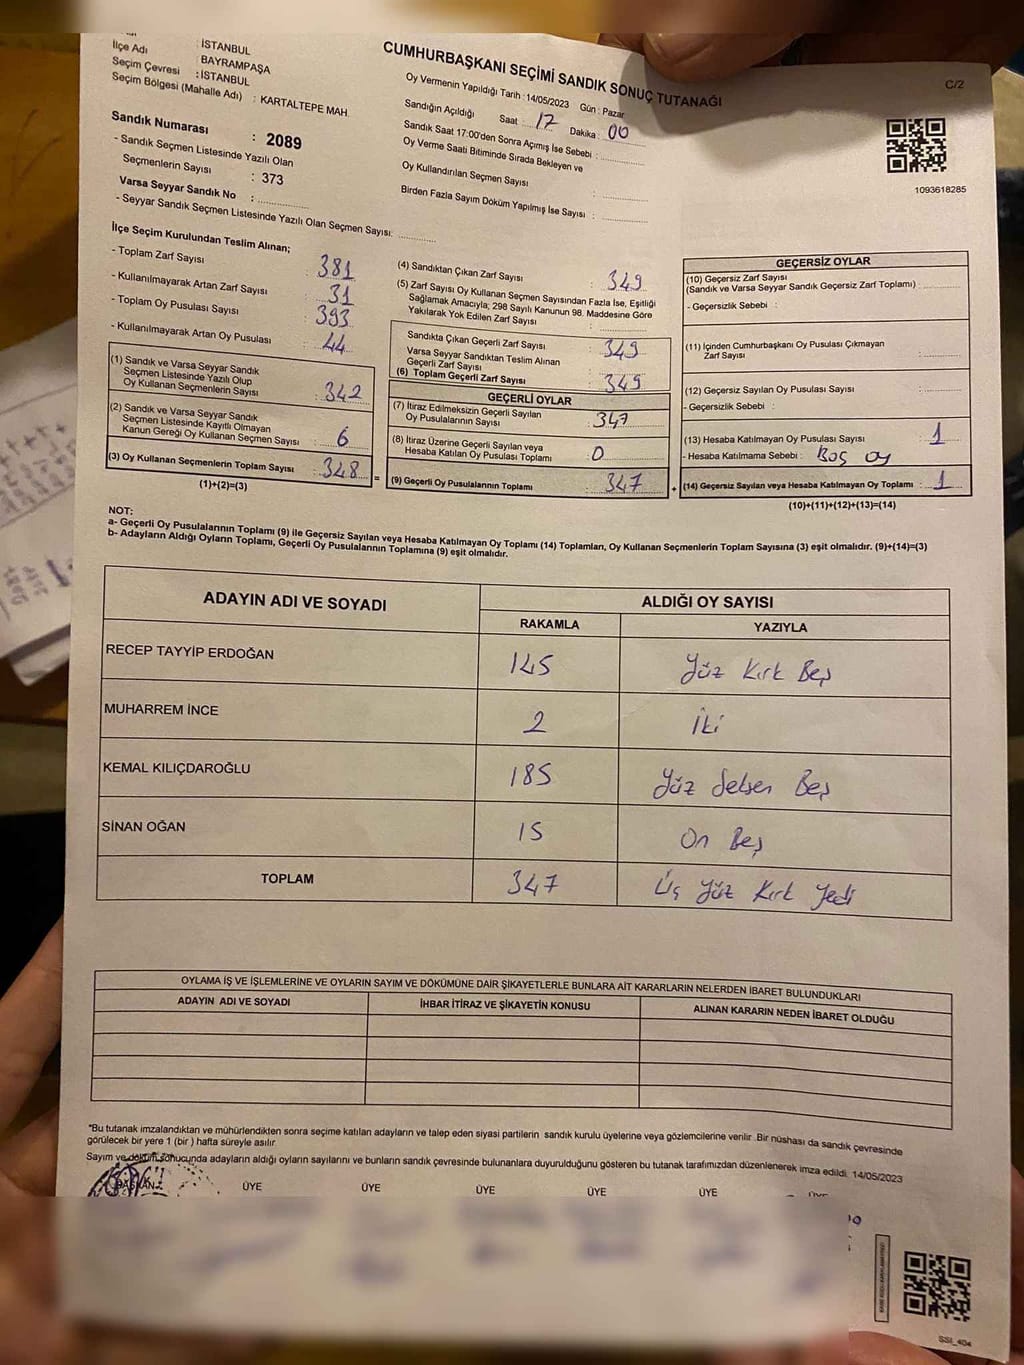 CUMHURBAŞKANI SEÇİMİ SANDIK SONUÇ TUTANAĞI
C/2
: İSTANBUL
İlçe Adı : BAYRAMPAŞA
Seçim Çevresi : İSTANBUL
Seçim Bölgesi (Mahalle Adı) : KARTALTEPE MAH.
Sandık Numarası : 2089
- Sandık Seçmen Listesinde Yazılı Olan
Seçmenlerin Sayısı : 373
Varsa Seyyar Sandık No :
- Seyyar Sandık Seçmen Listesinde Yazılı Olan Seçmen Sayısı:
Oy Vermenin Yapıldığı Tarih : 14/05/2023 Gün : Pazar
Sandığın Açıldığı Saat : 17 Dakika : 00
Sandık Saat 17:00'den Sonra Açımış İse Sebebi :
Oy Verme Saati Bitiminde Sırada Bekleyen ve
Oy Kullandırılan Seçmen Sayısı :
Birden Fazla Sayım Döküm Yapılmış İse Sayısı :
1093618285
İlçe Seçim Kurulundan Teslim Alınan;
- Toplam Zarf Sayısı : 381
- Kullanılmayarak Artan Zarf Sayısı : 31
- Toplam Oy Pusulası Sayısı : 393
- Kullanılmayarak Artan Oy Pusulası : 44
(1) Sandık ve Varsa Seyyar Sandık
Seçmen Listesinde Yazılı Olup
Oy Kullanan Seçmenlerin Sayısı : 342
(2) Sandık ve Varsa Seyyar Sandık
Seçmen Listesinde Kayıtlı Olmayan
Kanun Gereği Oy Kullanan Seçmen Sayısı : 6
(3) Oy Kullanan Seçmenlerin Toplam Sayısı : 348
(1)+(2)=(3)
(4) Sandıktan Çıkan Zarf Sayısı : 349
(5) Zarf Sayısı Oy Kullanan Seçmen Sayısından Fazla İse, Eşitliği
Sağlamak Amacıyla; 298 Sayılı Kanunun 98. Maddesine Göre
Yakılarak Yok Edilen Zarf Sayısı :
Sandıkta Çıkan Geçerli Zarf Sayısı : 349
Varsa Seyyar Sandıktan Teslim Alınan
Geçerli Zarf Sayısı :
(6) Toplam Geçerli Zarf Sayısı : 349
GEÇERLİ OYLAR
(7) İtiraz Edilmeksizin Geçerli Sayılan
Oy Pusulalarının Sayısı : 347
(8) İtiraz Üzerine Geçerli Sayılan veya
Hesaba Katılan Oy Pusulası Toplamı : 0
= (9) Geçerli Oy Pusulalarının Toplamı : 347
GEÇERSİZ OYLAR
(10) Geçersiz Zarf Sayısı
(Sandık ve Varsa Seyyar Sandık Geçersiz Zarf Toplamı) :
- Geçersizlik Sebebi :
(11) İçinden Cumhurbaşkanı Oy Pusulası Çıkmayan
Zarf Sayısı :
(12) Geçersiz Sayılan Oy Pusulası Sayısı :
- Geçersizlik Sebebi :
(13) Hesaba Katılmayan Oy Pusulası Sayısı : 1
- Hesaba Katılmama Sebebi : Boş oy
+ (14) Geçersiz Sayılan veya Hesaba Katılmayan Oy Toplamı : 1
(10)+(11)+(12)+(13)=(14)
NOT:
a- Geçerli Oy Pusulalarının Toplamı (9) ile Geçersiz Sayılan veya Hesaba Katılmayan Oy Toplamı (14) Toplamları, Oy Kullanan Seçmenlerin Toplam Sayısına (3) eşit olmalıdır. (9)+(14)=(3)
b- Adayların Aldığı Oyların Toplamı, Geçerli Oy Pusulalarının Toplamına (9) eşit olmalıdır.
ADAYIN ADI VE SOYADI ALDIĞI OY SAYISI
RAKAMLA YAZIYLA
RECEP TAYYİP ERDOĞAN 145 Yüz Kırk Beş
MUHARREM İNCE 2 İki
KEMAL KILIÇDAROĞLU 185 Yüz Seksen Beş
SİNAN OĞAN 15 On Beş
TOPLAM 347 Üç Yüz Kırk Yedi
OYLAMA İŞ VE İŞLEMLERİNE VE OYLARIN SAYIM VE DÖKÜMÜNE DAİR ŞİKAYETLERLE BUNLARA AİT KARARLARIN NELERDEN İBARET BULUNDUKLARI
ADAYIN ADI VE SOYADI İHBAR İTİRAZ VE ŞİKAYETİN KONUSU ALINAN KARARIN NEDEN İBARET OLDUĞU
*Bu tutanak imzalandıktan ve mühürlendikten sonra seçime katılan adayların ve talep eden siyasi partilerin sandık kurulu üyelerine veya gözlemcilerine verilir. Bir nüshası da sandık çevresinde
görülecek bir yere 1 (bir) hafta süreyle asılır.
Sayım ve döküm sonucunda adayların aldığı oyların sayılarını ve bunların sandık çevresinde bulunanlara duyurulduğunu gösteren bu tutanak tarafımızdan düzenlenerek imza edildi. 14/05/2023
BAŞKAN ÜYE ÜYE ÜYE ÜYE ÜYE ÜYE
SSI_404